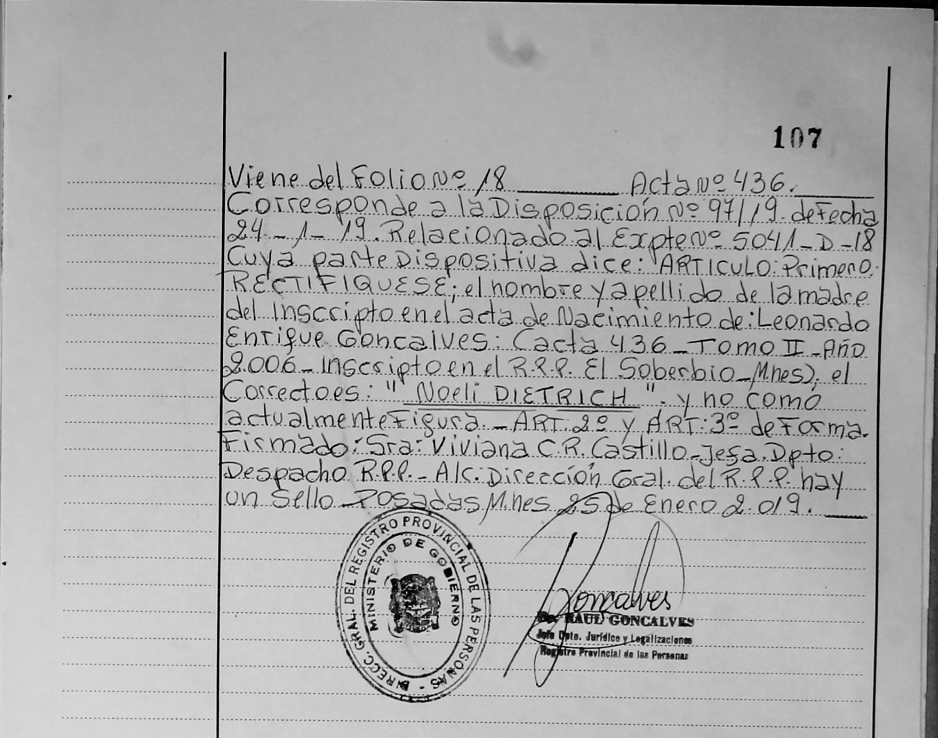 107
Viene del Folio Nº 18 ______ Acta Nº 436.____
Corresponde a la Disposición Nº 97/19. de Fecha
24-1-19. Relacionado al Expte Nº 5041-D-18
Cuya parte Dispositiva dice: "ARTICULO: Primero.
RECTIFIQUESE; el nombre y apellido de la madre
del Inscripto en el acta de Nacimiento de: Leonardo
Enrique Goncalves: Cacta 436-Tomo II-Año
2.006-Inscripto en el R.P.P. El Soberbio-Mnes); el
Correcto es: "Noeli DIETRICH". y no como
actualmente Figura.-ART. 2º y ART: 3º de Forma.
Firmado: Sra: Viviana C.R. Castillo-Jefa. Dpto:
Despacho R.P.P.-A/c. Dirección Gral. del R.P.P. hay
un Sello-Posadas, Mnes 25 de Enero 2.019.____
DIRECC. GRAL. DEL REGISTRO PROVINCIAL DE LAS PERSONAS
MINISTERIO DE GOBIERNO
Goncalves
Dr. RAUL GONCALVES
Jefe Dpto. Jurídico y Legalizaciones
Registro Provincial de las Personas